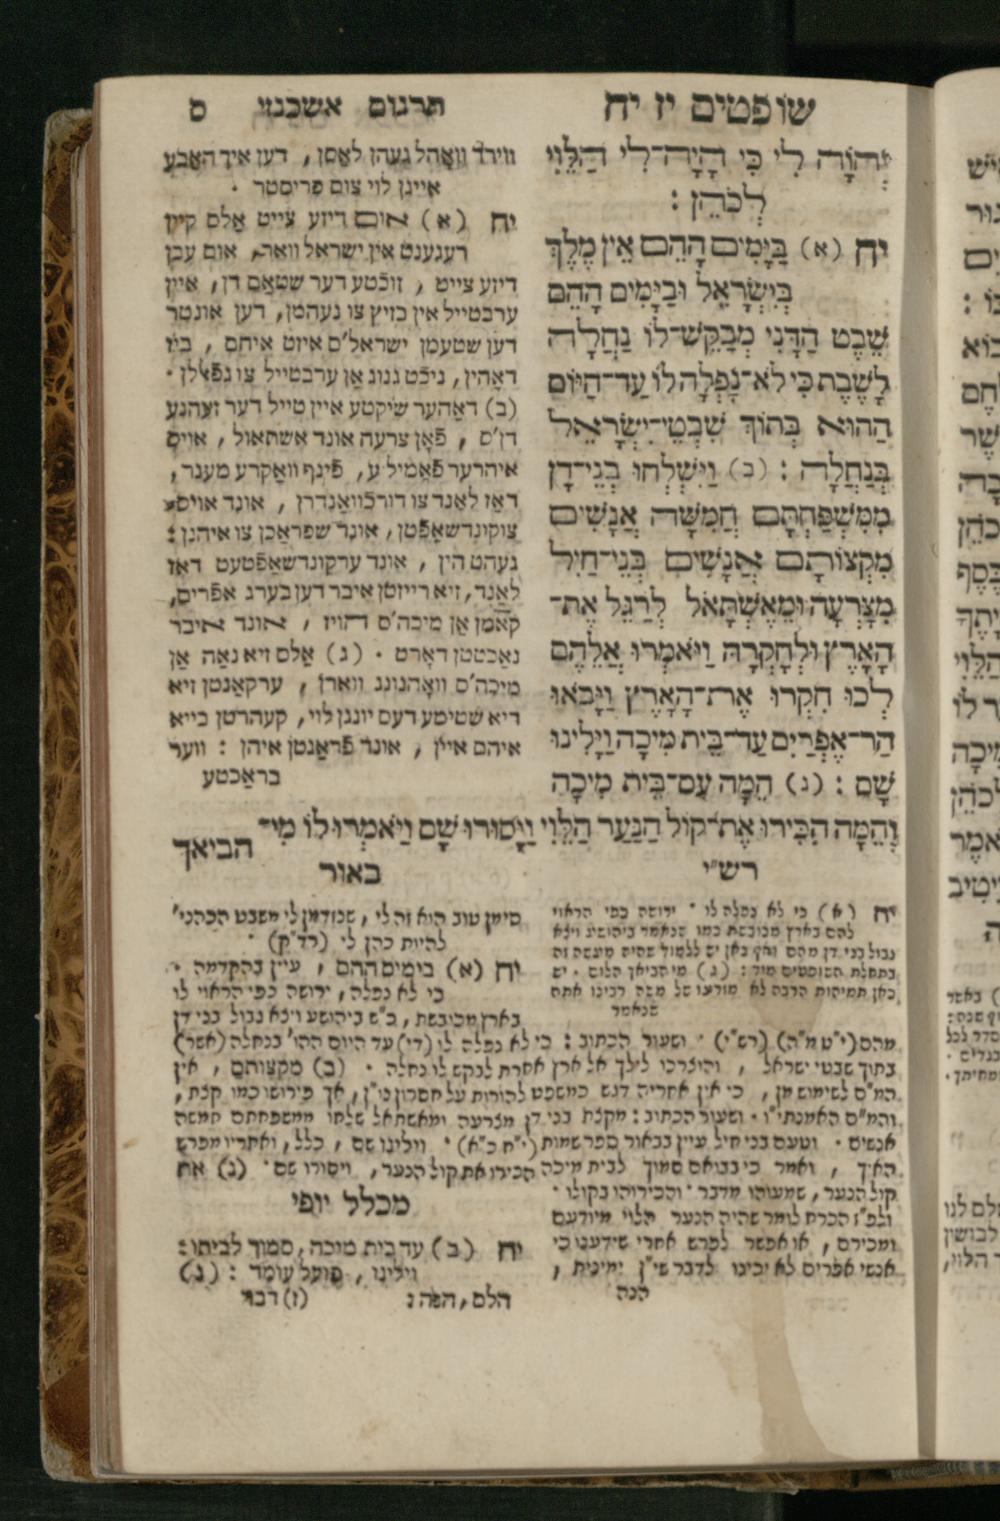 שופטים יז יח
תרגום אשכנזי
ס
יְהוָֹה לִי כִּי הָיָה־לִי הַלֵּוִי
לְכֹהֵן :
יח (א) בַּיָּמִים הָהֵם אֵין מֶלֶךְ
בְּיִשְׂרָאֵל וּבַיָּמִים הָהֵם
שֵׁבֶט הַדָּנִי מְבַקֶּשׁ־לוֹ נַחֲלָה
לָשֶׁבֶת כִּי לֹא־נָפְלָה לּוֹ עַד־הַיּוֹם
הַהוּא בְּתוֹךְ שִׁבְטֵי־יִשְׂרָאֵל
בְּנַחֲלָה : (ב) וַיִּשְׁלְחוּ בְנֵי־דָן
מִמִּשְׁפַּחְתָּם חֲמִשָּׁה אֲנָשִׁים
מִקְצוֹתָם אֲנָשִׁים בְּנֵי־חַיִל
מִצָּרְעָה וּמֵאֶשְׁתָּאֹל לְרַגֵּל אֶת־
הָאָרֶץ וּלְחָקְרָהּ וַיֹּאמְרוּ אֲלֵהֶם
לְכוּ חִקְרוּ אֶת־הָאָרֶץ וַיָּבֹאוּ
הַר־אֶפְרַיִם עַד־בֵּית מִיכָה וַיָּלִינוּ
שָׁם : (ג) הֵמָּה עִם־בֵּית מִיכָה
וְהֵמָּה הִכִּירוּ אֶת־קוֹל הַנַּעַר הַלֵּוִי וַיָּסוּרוּ שָׁם וַיֹּאמְרוּ לוֹ מִי־
הביאך
ווירד וואָהל געהן לאַסן , דען איך האָבע
איינן לוי צום פריסטר .
יח (א) אום דיזע צייט אלס קיין
רעגענט אין ישראל וואר, אום עבן
דיזע צייט , זוכטע דער שטאַם דן , איין
ערבטייל אין בזיץ צו נעהמן, דען אונטר
דען שטעמן ישראל'ס איזט איהם , ביז
דאָהין, ניכט גנוג אן ערבטייל צו גפאלן .
(ב) דאַהער שיקטע איין טייל דער זעהנע
דן'ס , פאָן צרעה אונד אשתאול , אויס
איהרער פאַמיליע, פינף וואַקרע מענר,
דאַז לאַנד צו דורכוואַנדרן , אונד אויס
צוקונדשאַפטן, אונד שפראַכן צו איהנן :
געהט הין , אונד ערקונדשאַפטעט דאַז
לאַנד, זיא רייזטן איבר דען בערג אפרים,
קאַמן אן מיכה'ס הויז , אונד איבר
נאַכטטן דאָרט . (ג) אלס זיא נאה אן
מיכה'ס וואָהנונג ווארן , ערקאַנטן זיא
דיא שטימע דעס יונגן לוי, קעהרטן בייא
איהם איין , אונד פראַגטן איהן : ווער
בראַכטע
רש"י
יח (א) כי לא נפלה לו . ירושה כפי הראוי
להם בארץ מכובשת כמו שנאמר ביהושע ויצא
גבול בני דן מהם ואף כאן יש ללמוד שהיה מעשה זה
בתחלת השופטים מיד : (ג) מי הביאך הלום . יש
כאן תמיהות הרבה לא מזרעו של משה רבינו אתה
שנאמר
באור
סימן טוב הוא זה לי , שנזדמן לי משבט הכהני'
להיות כהן לי (רד"ק) .
יח (א) בימים ההם , עיין בהקדמה .
כי לא נפלה , ירושה כפי הראוי לו
בארץ מכובשת , כ"ש ביהושע ויצא גבול בני דן
מהם (י"ט מ"ה) (רש"י) . ושעור הכתוב : כי לא נפלה לו (די) עד היום ההו' בנחלה (אשר)
בתוך שבטי ישראל , והוצרכו לילך אל ארץ אחרת לבקש לו נחלה . (ב) מקצותם , אין
המ"ם לשימוש מן , כי אין אחריה דגש כמשפט להורות על חסרון נו"ן , אך פירושו כמו קצת ,
והמ"ם האמנתי"ו . ושעור הכתוב : מקצת בני דן מצרעה ומאשתאל שלחו ממשפחתם חמשה
אנשים . וטעם בני חיל עיין בבאור ספר שמות (י"ח כ"א) . וילינו שם , כלל , ואחריו מפרש
האיך , ואמר כי בבואם סמוך לבית מיכה הכירו את קול הנער , ויסורו שם . (ג) את
קול הנער , שמעוהו מדבר והכירוהו בקולו .
ולפ"ז הכרח לומר שהיה הנער הלוי מיודעם
ומכירם , או אפשר לפרש אחרי שידענו כי
אנשי אפרים לא יכינו לדבר שי"ן ימינית ,
הנה
מכלל יופי
יח (ב) עד בית מיכה, סמוך לביתו :
וילינו , פועל עומד : (ג)
הלם , הנה :
(ז) דבר